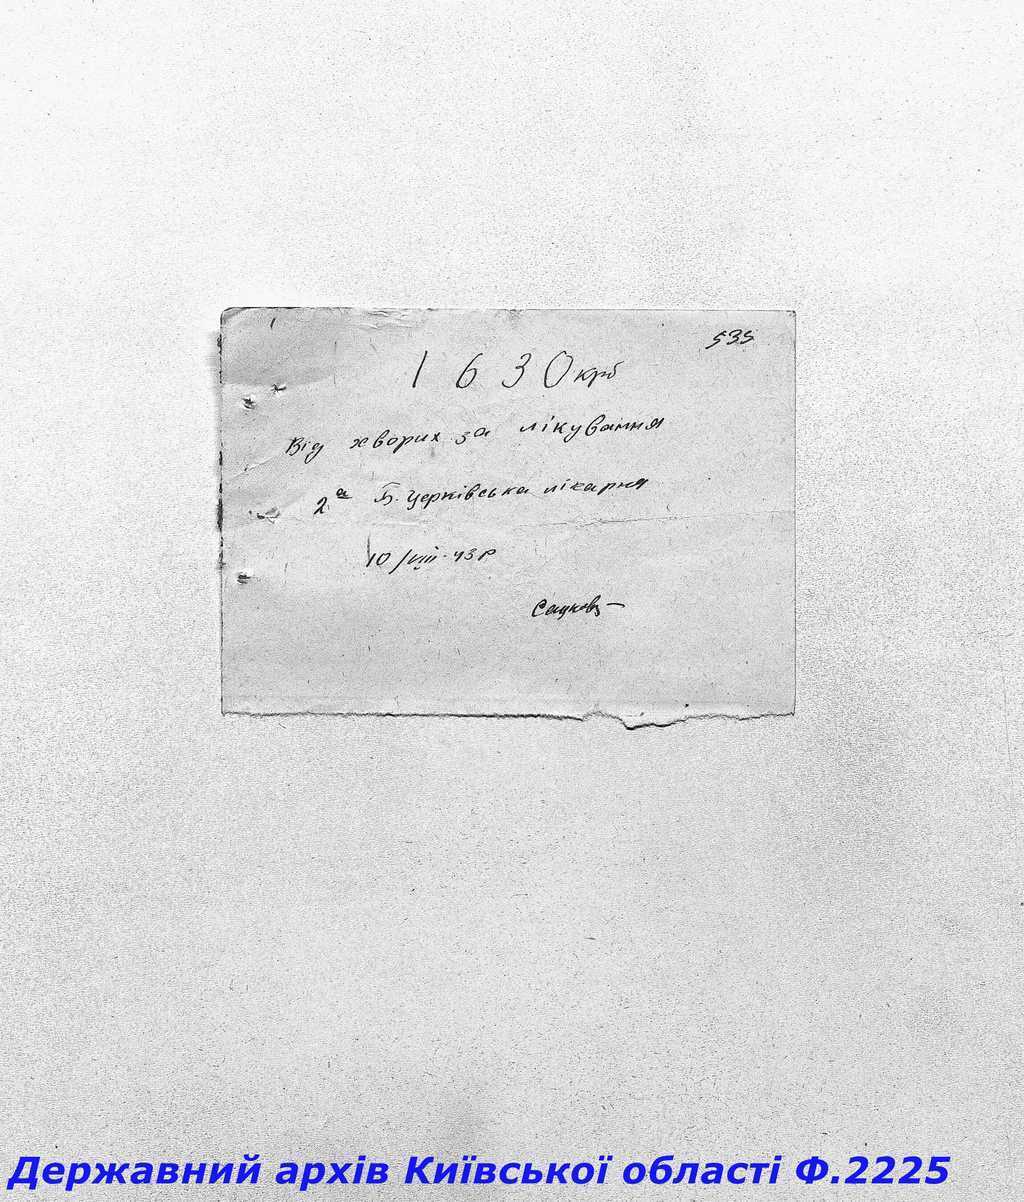 535
1630 крб
Від хворих за лікування
2а Б. Церківська лікарня
10/VIII-43 р
Державний архів Київської області Ф.2225